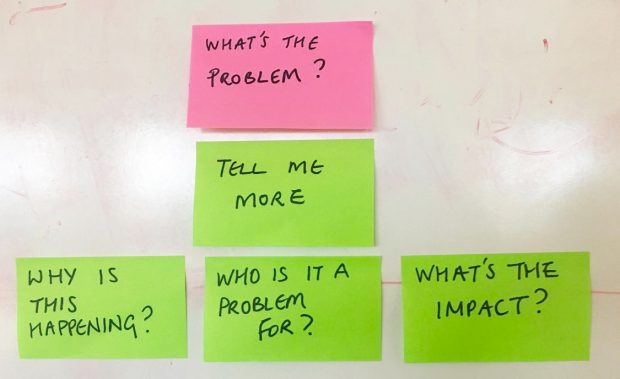 WHAT'S THE
PROBLEM?
TELL ME
MORE
WHY IS
THIS
HAPPENING?
WHO IS IT A
PROBLEM
FOR?
WHAT'S THE
IMPACT?